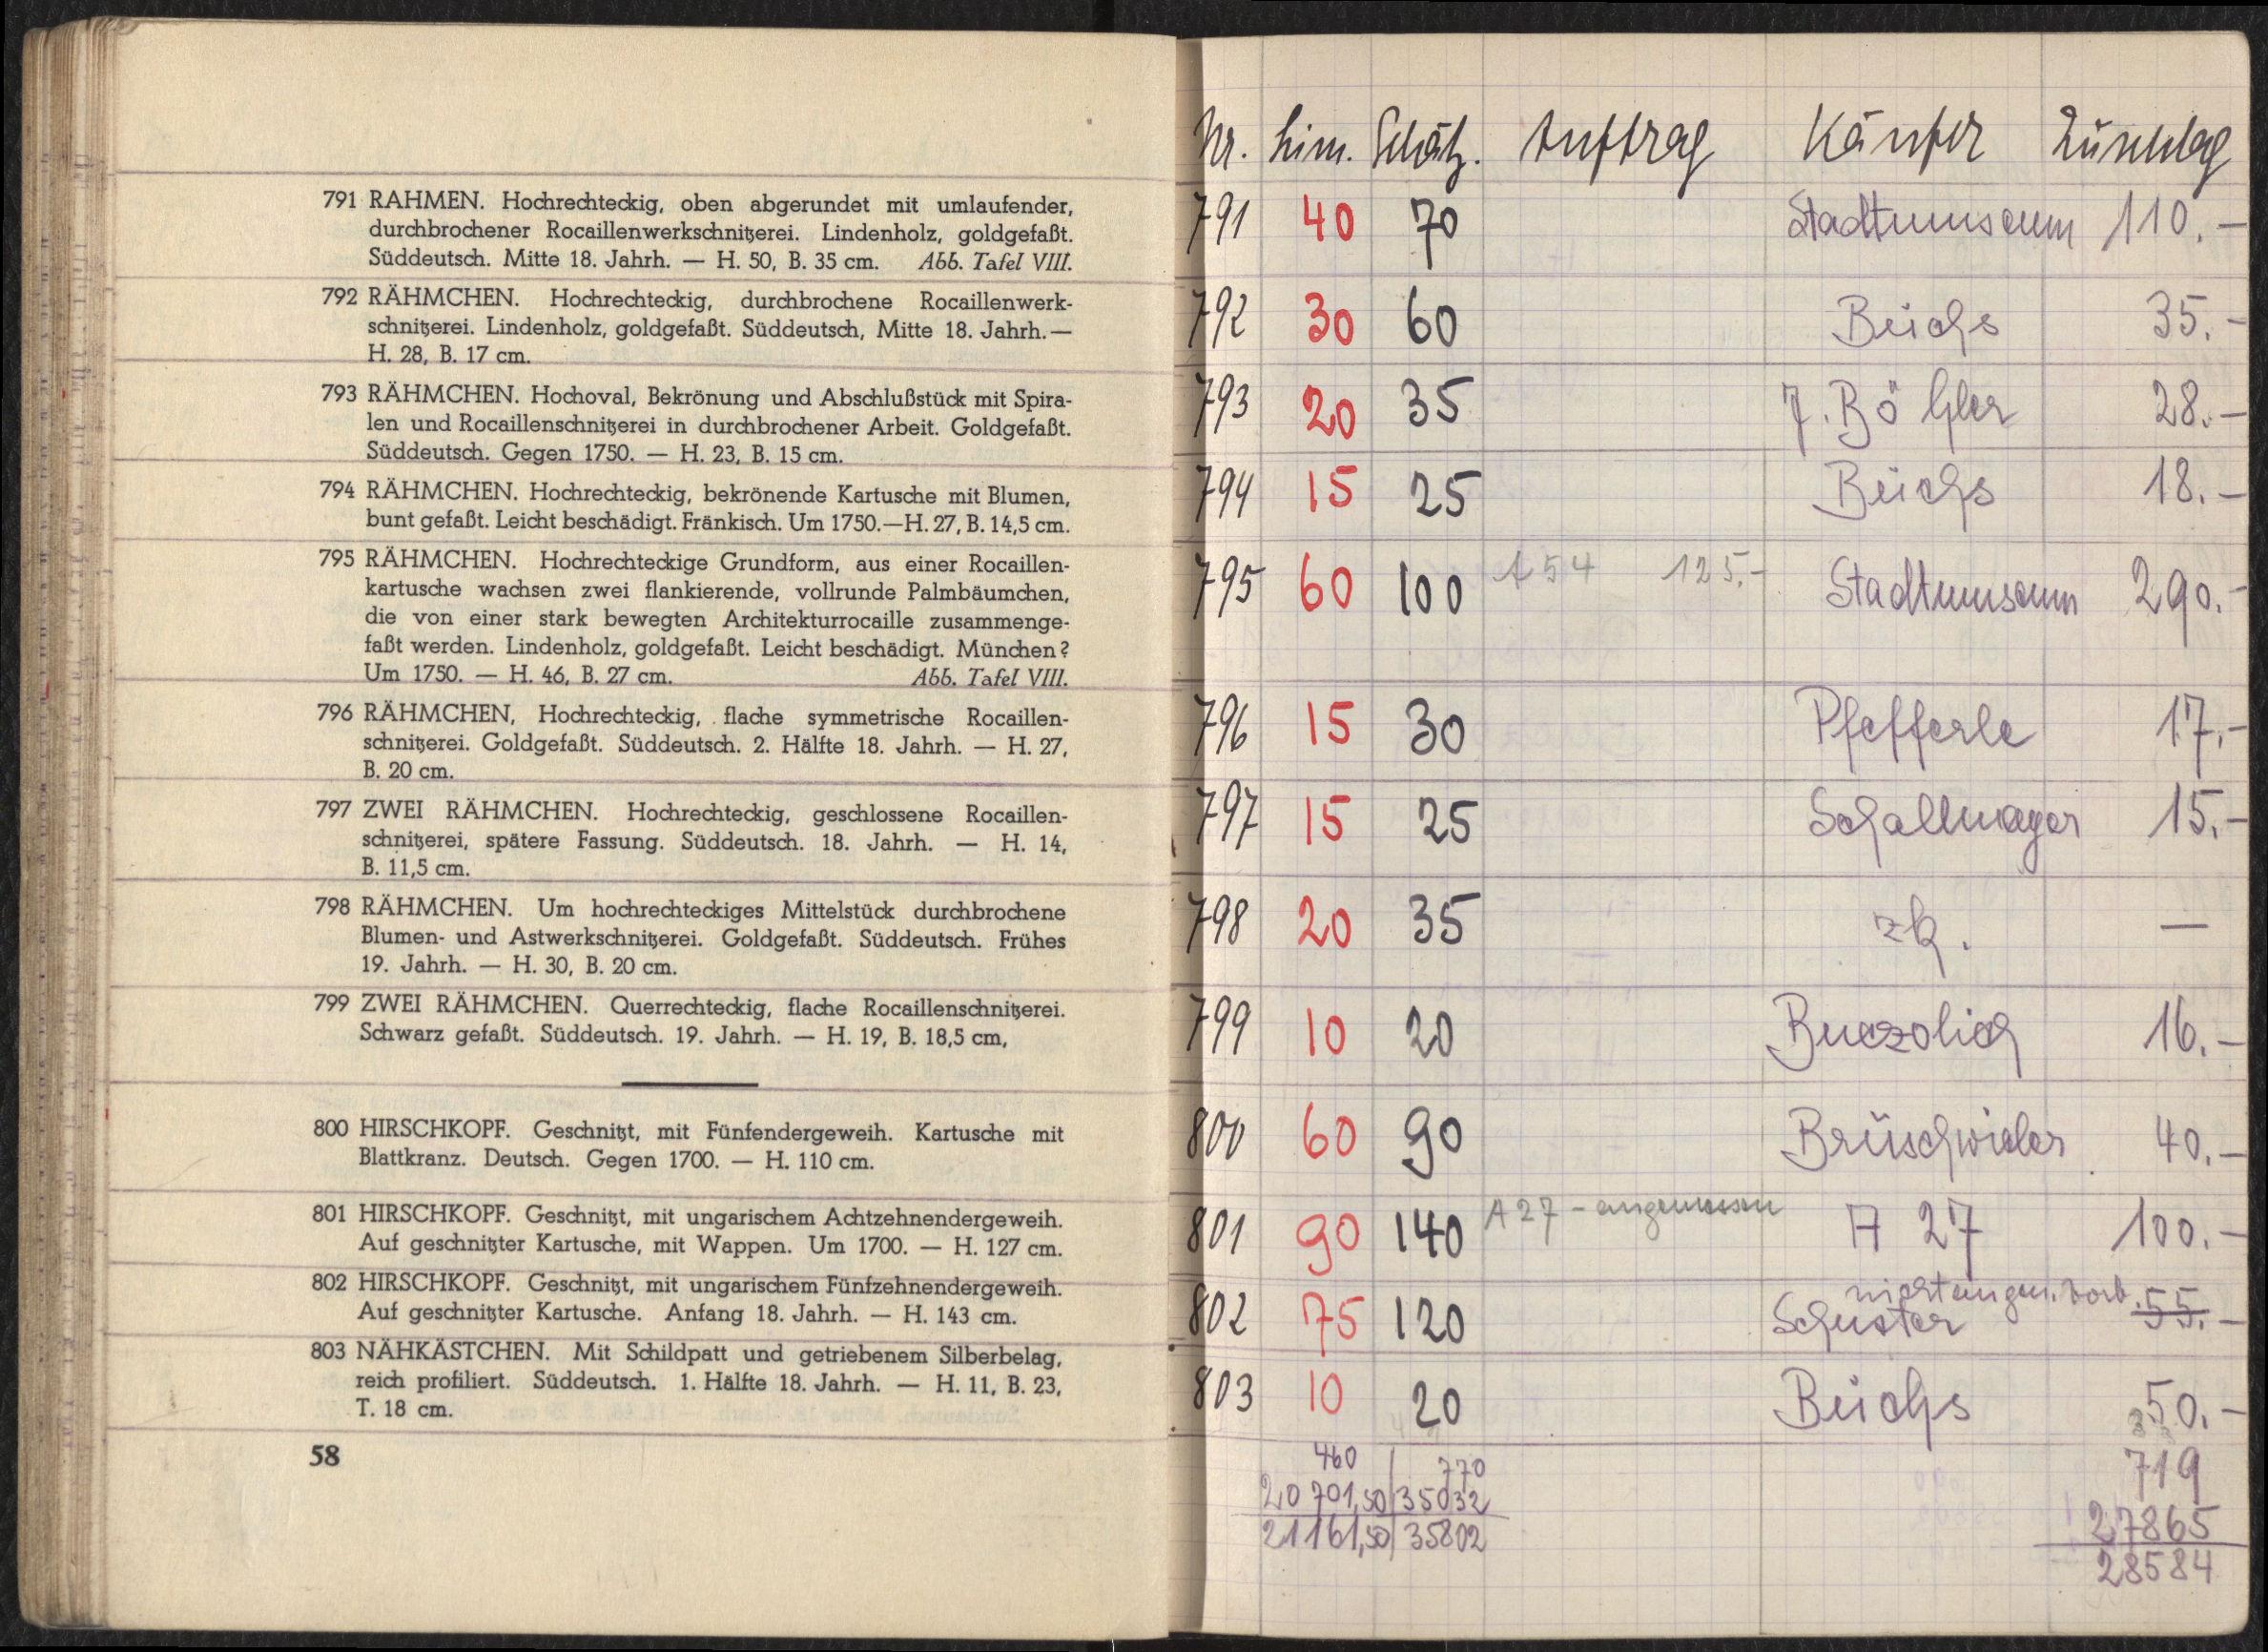 791 RAHMEN. Hochrechteckig, oben abgerundet mit umlaufender,
durchbrochener Rocaillenwerkschnitzerei. Lindenholz, goldgefaßt.
Süddeutsch. Mitte 18. Jahrh. — H. 50, B. 35 cm. Abb. Tafel VIII.
792 RÄHMCHEN. Hochrechteckig, durchbrochene Rocaillenwerk-
schnitzerei. Lindenholz, goldgefaßt. Süddeutsch, Mitte 18. Jahrh.—
H. 28, B. 17 cm.
793 RÄHMCHEN. Hochoval, Bekrönung und Abschlußstück mit Spira-
len und Rocaillenschnitzerei in durchbrochener Arbeit. Goldgefaßt.
Süddeutsch. Gegen 1750. — H. 23, B. 15 cm.
794 RÄHMCHEN. Hochrechteckig, bekrönende Kartusche mit Blumen,
bunt gefaßt. Leicht beschädigt. Fränkisch. Um 1750.—H. 27, B. 14,5 cm.
795 RÄHMCHEN. Hochrechteckige Grundform, aus einer Rocaillen-
kartusche wachsen zwei flankierende, vollrunde Palmbäumchen,
die von einer stark bewegten Architekturrocaille zusammenge-
faßt werden. Lindenholz, goldgefaßt. Leicht beschädigt. München?
Um 1750. — H. 46, B. 27 cm. Abb. Tafel VIII.
796 RÄHMCHEN, Hochrechteckig, flache symmetrische Rocaillen-
schnitzerei. Goldgefaßt. Süddeutsch. 2. Hälfte 18. Jahrh. — H. 27,
B. 20 cm.
797 ZWEI RÄHMCHEN. Hochrechteckig, geschlossene Rocaillen-
schnitzerei, spätere Fassung. Süddeutsch. 18. Jahrh. — H. 14,
B. 11,5 cm.
798 RÄHMCHEN. Um hochrechteckiges Mittelstück durchbrochene
Blumen- und Astwerkschnitzerei. Goldgefaßt. Süddeutsch. Frühes
19. Jahrh. — H. 30, B. 20 cm.
799 ZWEI RÄHMCHEN. Querrechteckig, flache Rocaillenschnitzerei.
Schwarz gefaßt. Süddeutsch. 19. Jahrh. — H. 19, B. 18,5 cm,
800 HIRSCHKOPF. Geschnitzt, mit Fünfendergeweih. Kartusche mit
Blattkranz. Deutsch. Gegen 1700. — H. 110 cm.
801 HIRSCHKOPF. Geschnitzt, mit ungarischem Achtzehnendergeweih.
Auf geschnitzter Kartusche, mit Wappen. Um 1700. — H. 127 cm.
802 HIRSCHKOPF. Geschnitzt, mit ungarischem Fünfzehnendergeweih.
Auf geschnitzter Kartusche. Anfang 18. Jahrh. — H. 143 cm.
803 NÄHKÄSTCHEN. Mit Schildpatt und getriebenem Silberbelag,
reich profiliert. Süddeutsch. 1. Hälfte 18. Jahrh. — H. 11, B. 23,
T. 18 cm.
58
Nr. Lim. Schätz. Auftrag Käufer Zuschlag
791 40 70 Stadtmuseum 110.—
792 30 60 35.—
793 20 35 28.—
794 15 25 18.—
795 60 100 A 54 125.— Stadtmuseum 290.—
796 15 30 Pfefferle 17.—
797 15 25 Schallmayer 15.—
798 20 35 zk. —
799 10 20 Buczolich 16.—
800 60 90 Brüschwiler 40.—
801 90 140 A 27 – angemessen A 27 100.—
802 75 120 Schuster 55.—
803 10 20 50.—
460 770 719
20701,50 35032 27865
21161,50 35802 28584